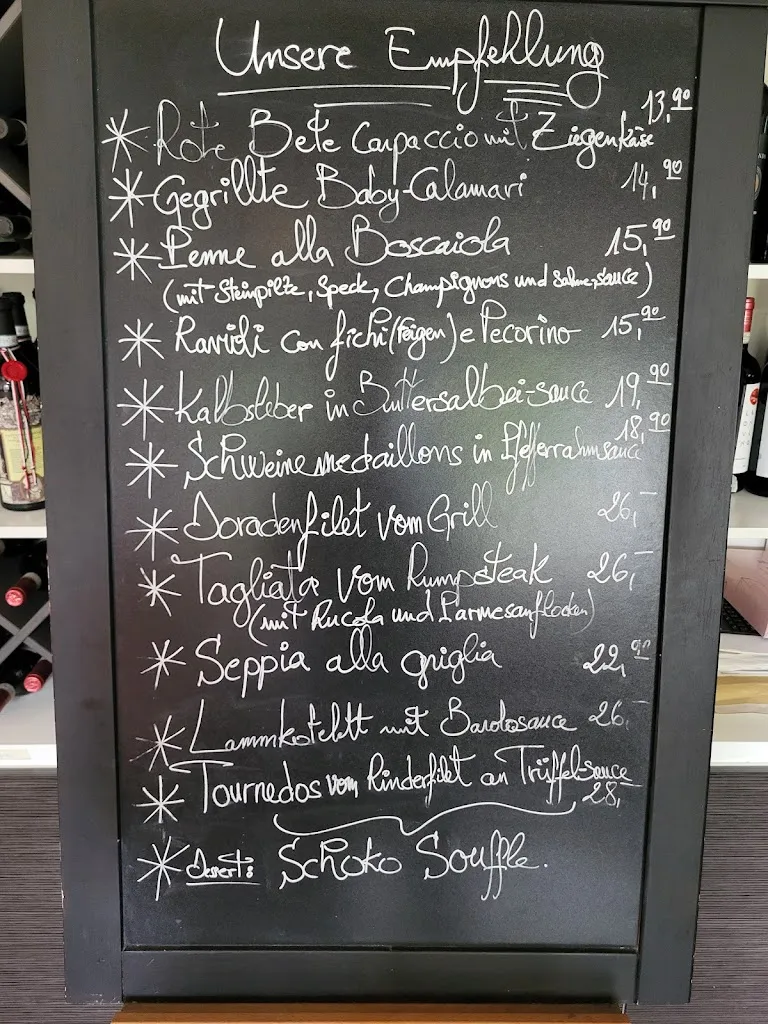 Unsere Empfehlung
* Rote Bete Carpaccio mit Ziegenkäse 13,90
* Gegrillte Baby-Calamari 14,90
* Penne alla Boscaiola 15,90
(mit Steinpilze, Speck, Champignons und Sahne,sauce)
* Ravioli con fichi (Feigen) e Pecorino 15,90
* Kalbsleber in Buttersalbei-sauce 19,90
* Schweinemedaillons in Pfefferrahmsauce 18,90
* Doradenfilet vom Grill 26,-
* Tagliata vom Rumpsteak 26,-
(mit Rucola und Parmesanflocken)
* Seppia alla griglia 22,90
* Lammkotelett mit Barolosauce 26,-
* Tournedos vom Rinderfilet an Trüffel-sauce 28,-
* Desert: Schoko Souffle.